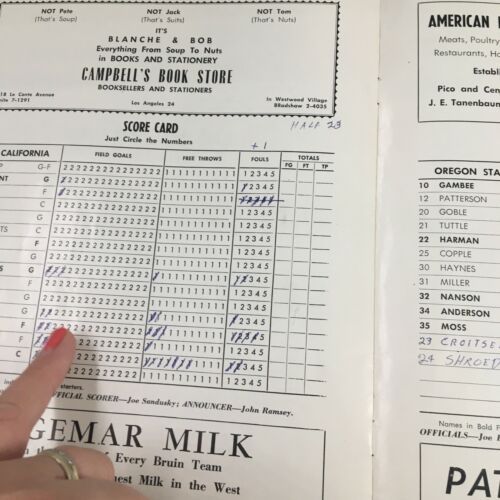 NOT Pete NOT Jack NOT Tom
(That's Soup) (That's Suits) (That's Nuts)
IT'S
BLANCHE & BOB
Everything From Soup To Nuts
in BOOKS AND STATIONERY
CAMPBELL'S BOOK STORE
BOOKSELLERS AND STATIONERS
18 Le Conte Avenue In Westwood Village
7-1291 Los Angeles 24 BRadshaw 2-4035
HALF 23
SCORE CARD
Just Circle the Numbers
+1
CALIFORNIA FIELD GOALS FREE THROWS FOULS TOTALS
FG FT TP
G-F 222222222222222 11111111111 12345
NT G 222222222222222 11111111111 12345
F 222222222222222 11111111111 12345
C 222222222222222 11111111111 12345
G 222222222222222 11111111111 12345
TS C 222222222222222 11111111111 12345
F 222222222222222 11111111111 12345
G 222222222222222 11111111111 12345
S G 222222222222222 11111111111 12345
F 222222222222222 11111111111 12345
G 222222222222222 11111111111 12345
G 222222222222222 11111111111 12345
F 222222222222222 11111111111 12345
F 222222222222222 11111111111 12345
C 222222222222222 11111111111 12345
starters.
OFFICIAL SCORER—Joe Sandusky; ANNOUNCER—John Ramsey.
GEMAR MILK
of Every Bruin Team
nest Milk in the West
AMERICAN
Meats, Poultry
Restaurants, Ho
Establi
Pico and Cen
J. E. Tanenbaum
OREGON STA
10 GAMBEE
12 PATTERSON
20 GOBLE
21 TUTTLE
22 HARMAN
25 COPPLE
30 HAYNES
31 MILLER
32 NANSON
34 ANDERSON
35 MOSS
23 CROITSE
24 SHROED
Names in Bold F
OFFICIALS—Joe
PAT